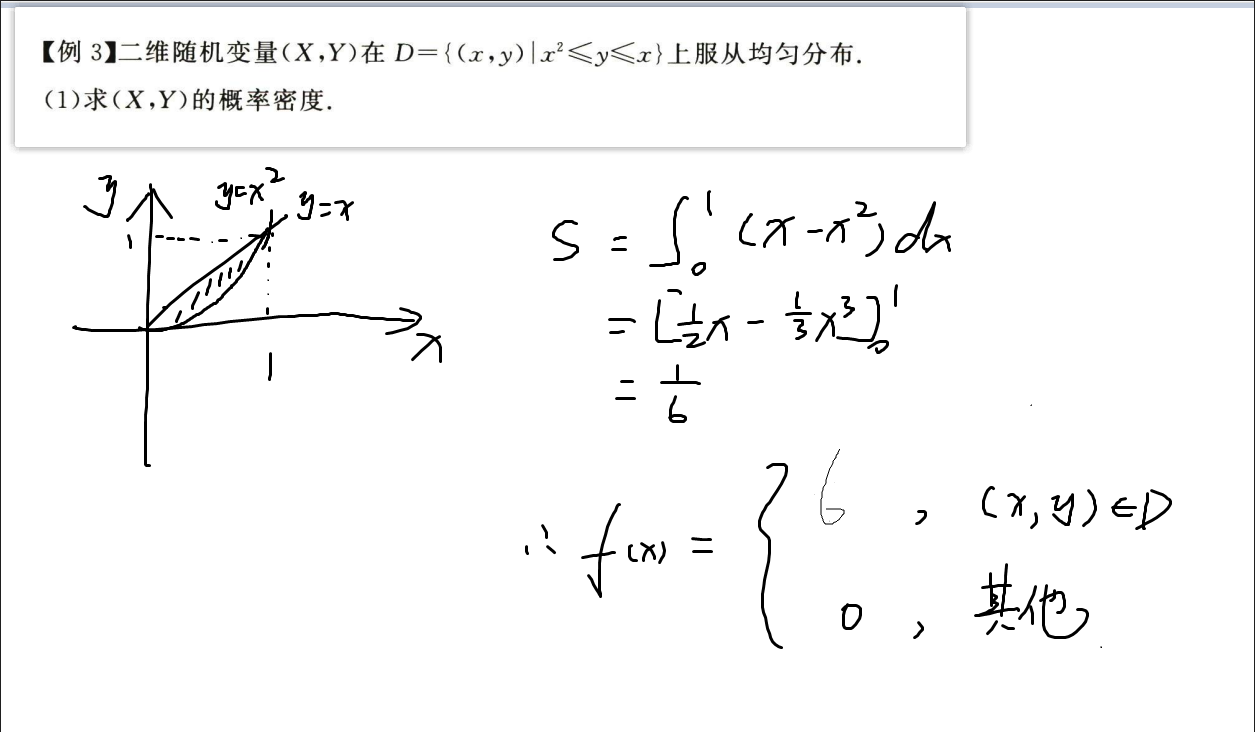 【例 3】二维随机变量(X,Y)在 D={(x,y)|x²≤y≤x}上服从均匀分布.
(1)求(X,Y)的概率密度.
y
y=x²
y=x
1
x
1
S = ∫₀¹ (x-x²)dx
= [½x - ⅓x³]₀¹
= 1/6
∴ f(x) = { 6 , (x,y)∈D
0 , 其他